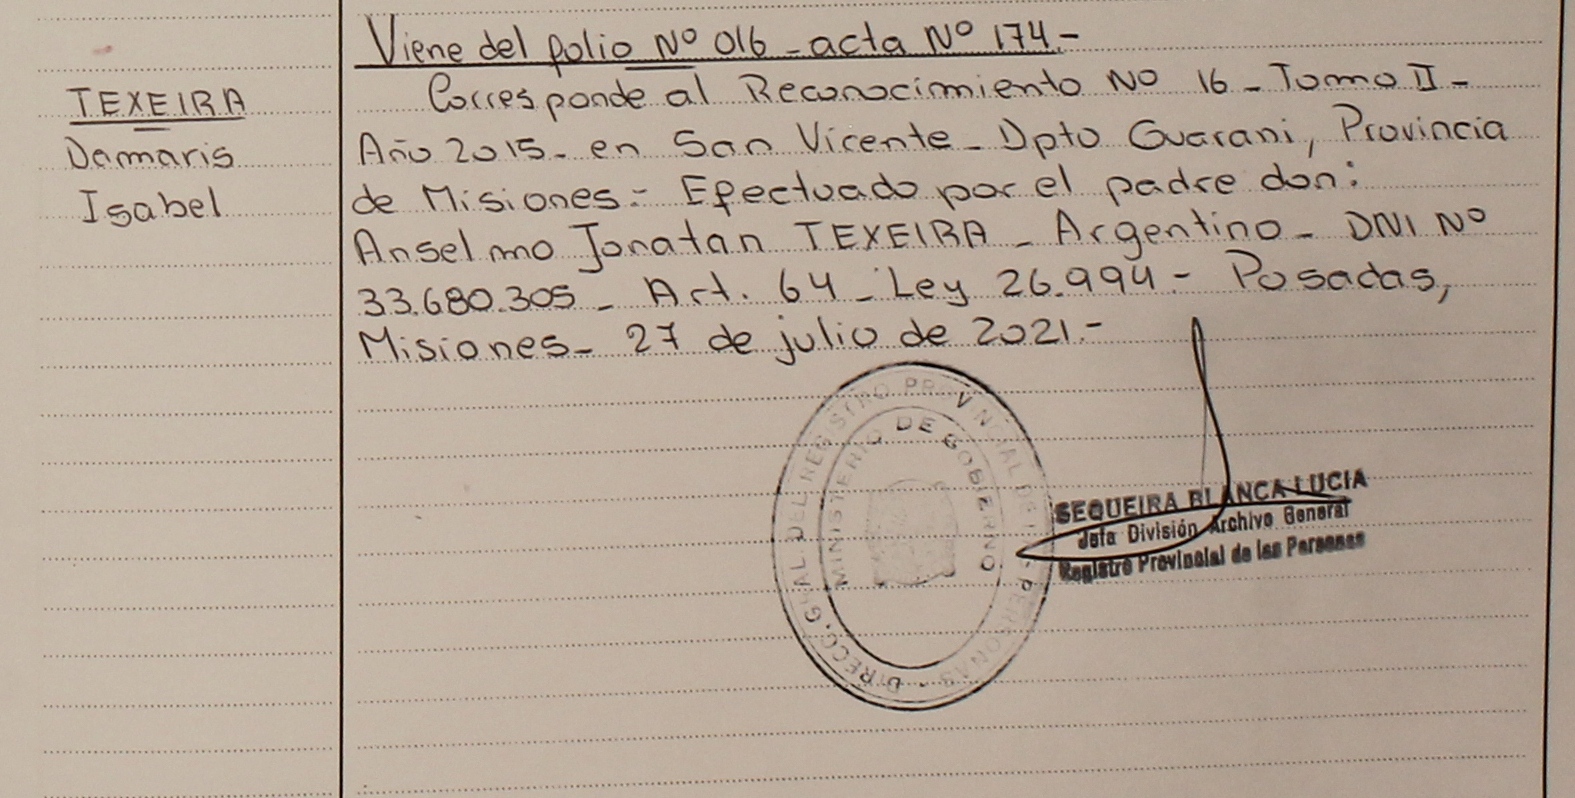 Viene del folio Nº 016 - acta Nº 174.-
TEXEIRA
Damaris
Isabel
Corresponde al Reconocimiento Nº 16 - Tomo II -
Año 2015 - en San Vicente - Dpto Guarani, Provincia
de Misiones.- Efectuado por el padre don:
Anselmo Jonatan TEXEIRA - Argentino - DNI Nº
33.680.305 - Art. 64 - Ley 26.994.- Posadas,
Misiones - 27 de julio de 2021.-
DIRECC. GRAL. DEL REGISTRO PROVINCIAL DE LAS PERSONAS
MINISTERIO DE GOBIERNO
SEQUEIRA BLANCA LUCIA
Jefa División Archivo General
Registro Provincial de las Personas